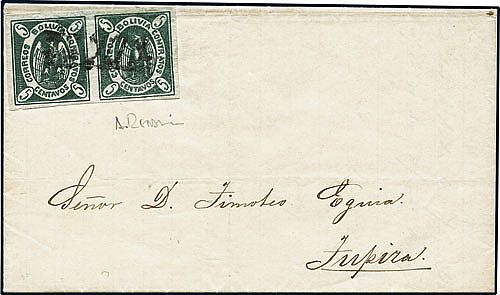 CORREOS BOLIVIA CONTRATOS
5 CENTAVOS 5
CORREOS BOLIVIA CONTRATOS
5 CENTAVOS 5
Señor D. Timoteo Eguia.
Tupiza.